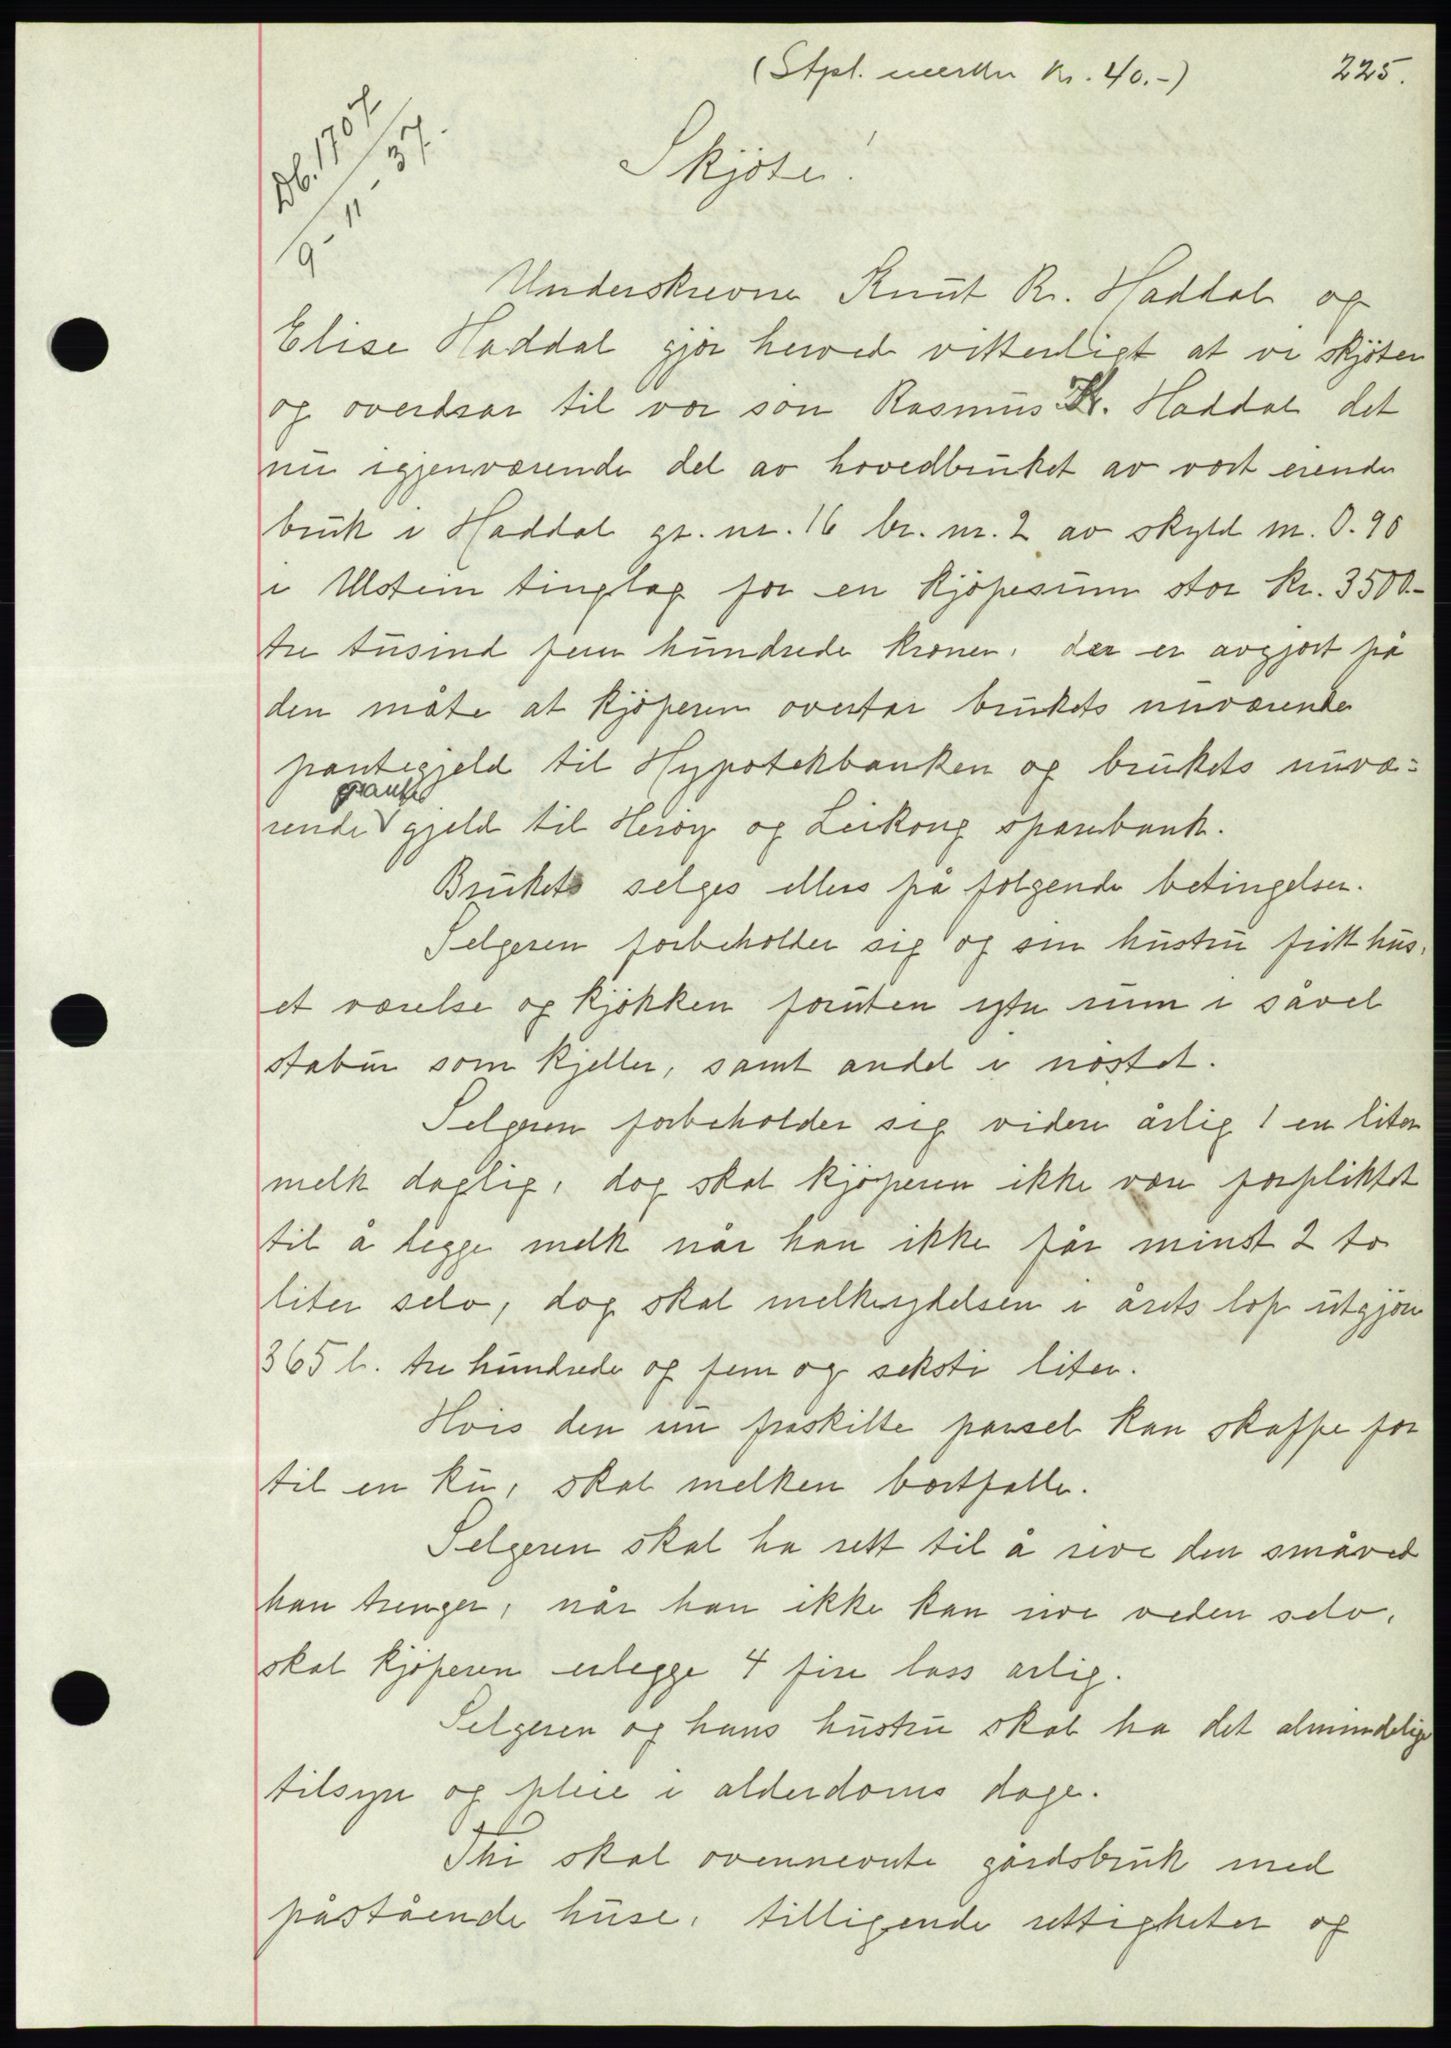 (Stpl. merker kr. 40.-) 225.
Db. 1707
9-11-37.
Skjøte!
Underskrevne Knut R. Haddal og
Elise Haddal gjør herved vitterligt at vi skjøter
og overdrar til vor søn Rasmus K. Haddal det
nu igjenværende del av hovedbruket av vort eiende
bruk i Haddal gr. nr. 16 br. nr. 2 av skyld m. 0.90
i Ulstein tinglag for en kjøpesum stor kr. 3500.-
tre tusind fem hundrede kroner, der er avgjort på
den måte at kjøperen overtar brukets nuværende
pantegjeld til Hypotekbanken og brukets nuvæ=
pante
rende gjeld til Herøy og Leikong sparebank.
Brukets selges ellers på følgende betingelser.
Selgeren forbeholder sig og sin hustru fritt hus,
et værelse og kjøkken foruten ytre rum i såvel
stabur som kjeller, samt andel i nøstet.
Selgeren forbeholder sig videre årlig 1 en liter
melk daglig, dog skal kjøperen ikke være forpliktet
til å legge melk når han ikke får minst 2 to
liter selv, dog skal melkeydelsen i årets løp utgjøre
365 l. tre hundrede og fem og seksti liter.
Hvis den nu fraskilte parsel kan skaffe for
til en ku, skal melken bortfalle.
Selgeren skal ha rett til å rive den småved
han trenger, når han ikke kan rive veden selv,
skal kjøperen erlegge 4 fire lass arlig.
Selgeren og hans hustru skal ha det almindelige
tilsyn og pleie i alderdoms dage.
Thi skal ovennevnte gårdsbruk med
påstående huse, tilligende rettigheter og